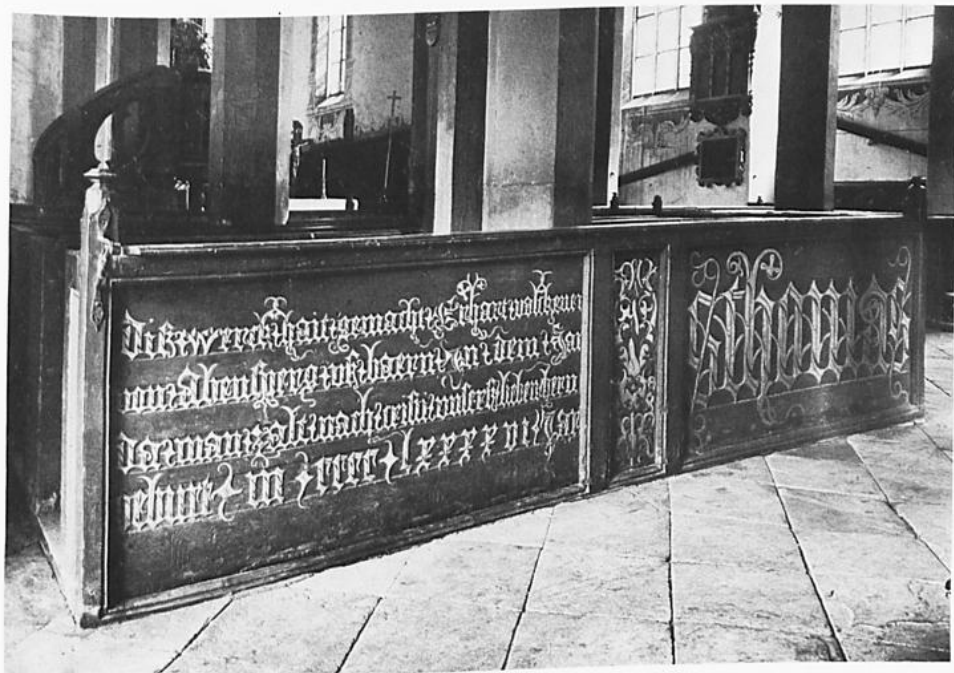 Diß werck hait gemacht Erhart valckener
von abensperg uß baern in dem Jar
da man zalt nach cristi unsers lieben hern
geburt m cccc lxxxxvii Jar